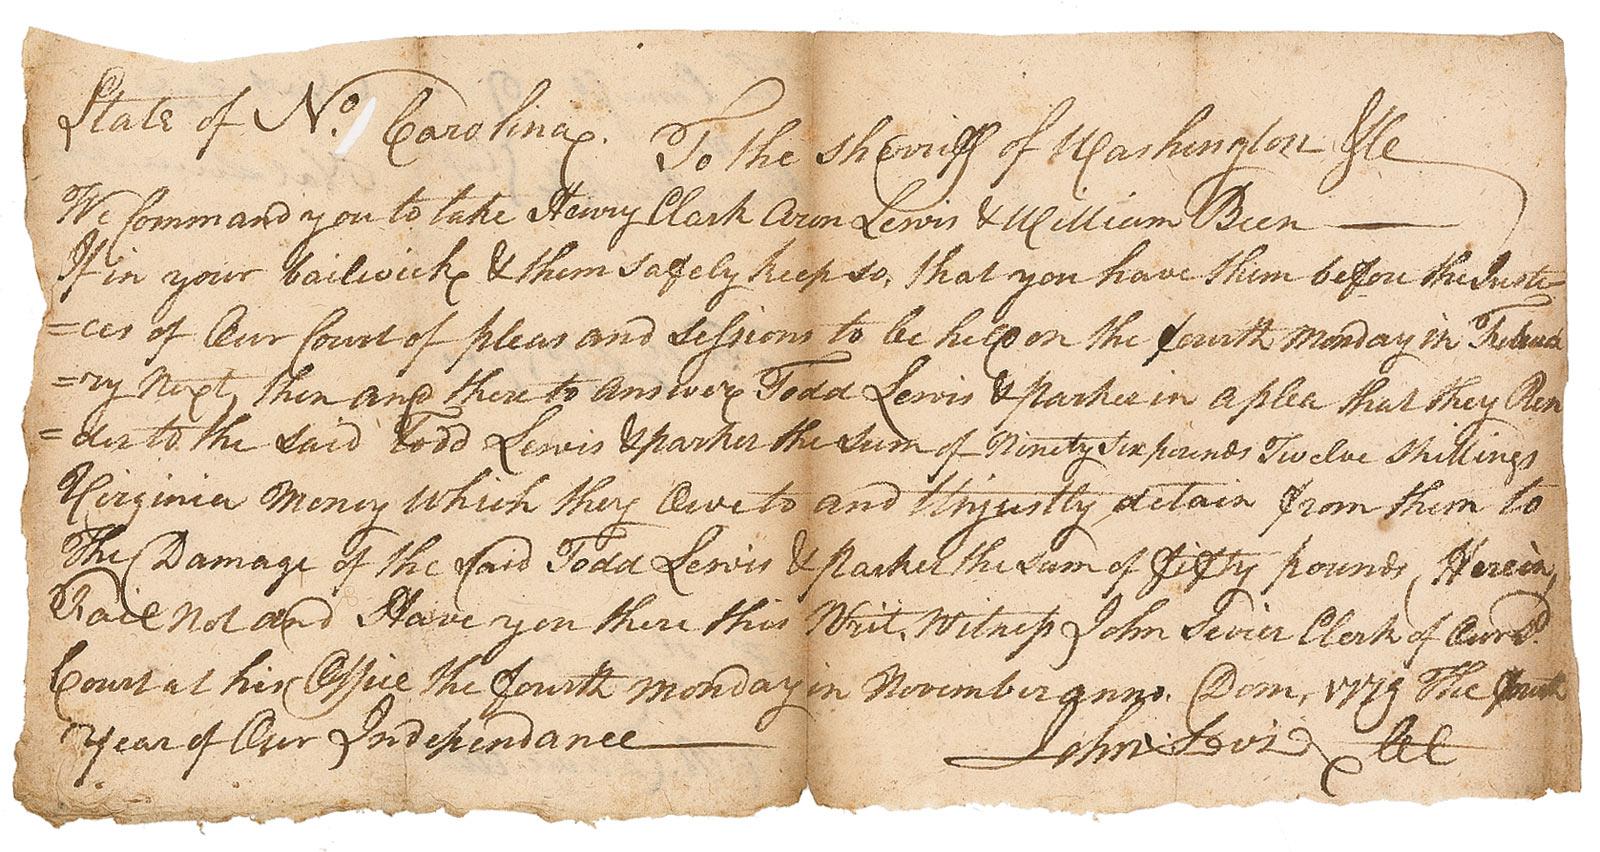 State of No. Carolina. To the Sherriff of Washington
We Command you to take Henry Clark Aron Lewis & William Been
If in your bailwick & them safely keep so, that you have them before the Justi-
=ces of Our Court of pleas and sessions to be held on the fourth Monday in Februa
=ry Next, then and there to answer Todd Lewis & parker in a plea that they Ren
=der to the said Todd Lewis & parker the sum of Ninety six pounds Twelve Shillings
Virginia Money Which they Owe to and Unjustly detain from them to
The Damage of the said Todd Lewis & parker the sum of fifty pounds, Herein,
Fail Not and Have you there this Writ, Witness John Sevier Clerk of Our Sd.
Court at his Office the fourth Monday in November anno. Dom, 1779 The fourth
year of Our Independance John Sevier